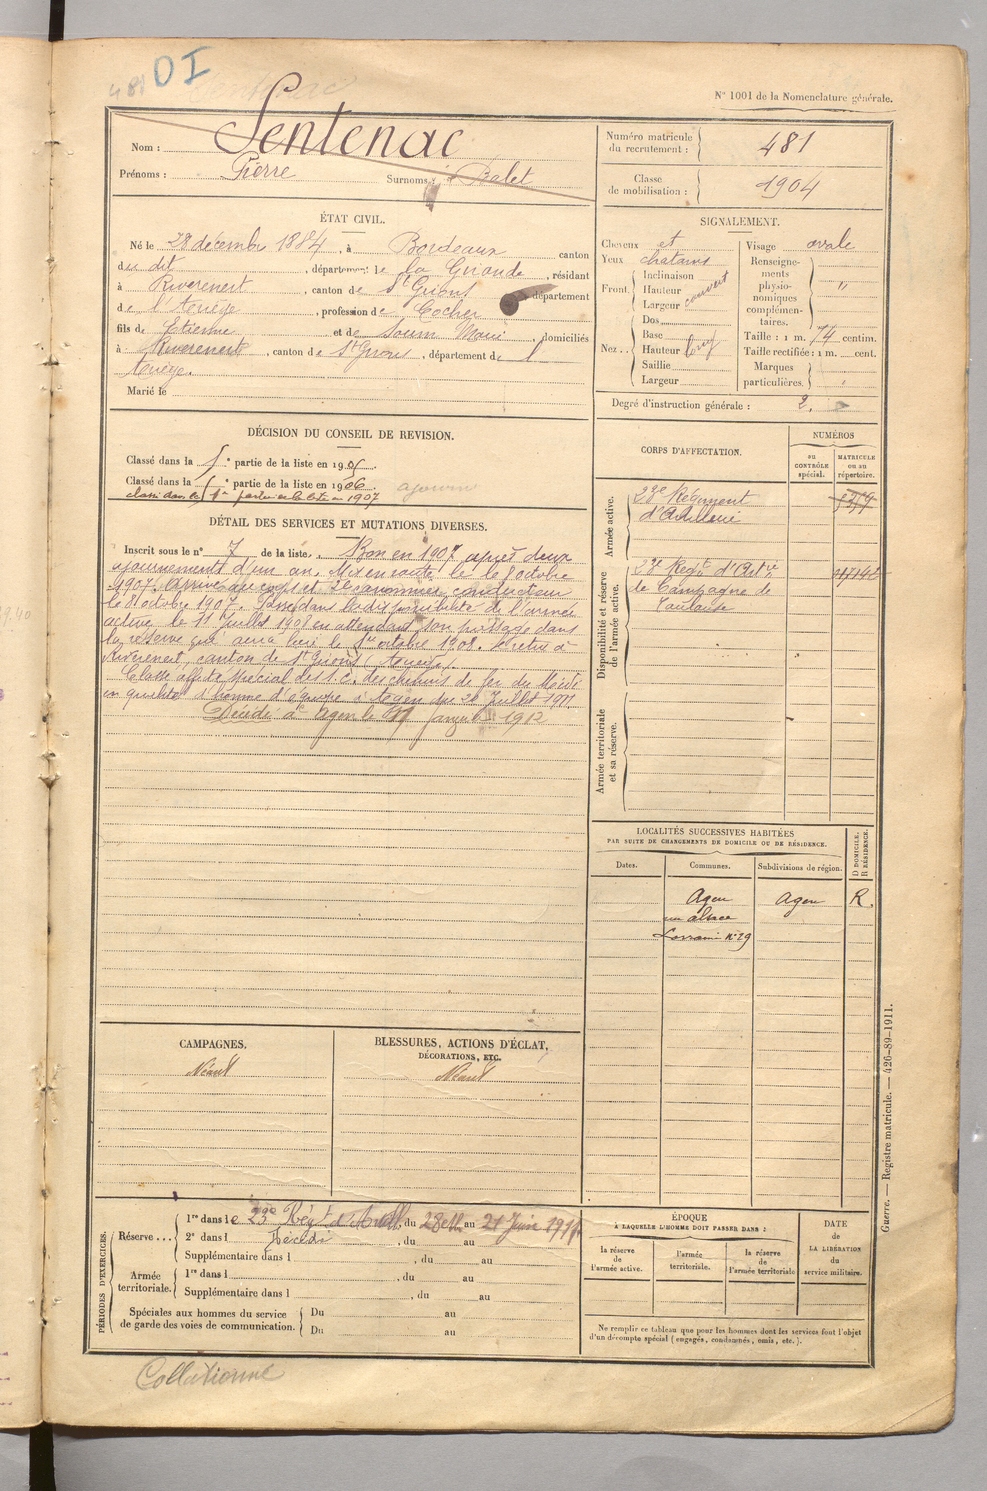 481 D I
N° 1001 de la Nomenclature générale.
Nom : Sentenac
Prénoms : Pierre Surnoms : Balet
Numéro matricule du recrutement : 481
Classe de mobilisation : 1904
ÉTAT CIVIL.
Né le 28 décembre 1884, à Bordeaux canton
du dit, département de la Gironde, résidant
à Riverenert, canton de St Girons département
de l'Ariège, profession de Cocher
fils de Etienne et de Soum Marie domiciliés
à Riverenert, canton de St Girons, département de l'
Ariège.
Marié le
SIGNALEMENT.
Cheveux et
Yeux chatains
Front. Inclinaison
Hauteur
Largeur couvert
Nez.. Dos
Base
Hauteur long
Saillie
Largeur
Visage ovale
Renseignements physionomiques complémentaires. "
Taille : 1 m. 74 centim.
Taille rectifiée : 1 m. cent.
Marques particulières. "
Degré d'instruction générale : 2.
DÉCISION DU CONSEIL DE REVISION.
Classé dans la 5e partie de la liste en 1905.
Classé dans la 5e partie de la liste en 1906. ajourné
classé dans la 1re partie de la liste en 1907
DÉTAIL DES SERVICES ET MUTATIONS DIVERSES.
Inscrit sous le n° 7 de la liste. Bon en 1907 après deux
ajournements d'un an. Mis en route le 8 octobre
1907. Arrivé au corps et 2e canonnier conducteur
le 8 octobre 1907. Passé dans la disponibilité de l'armée
active le 11 juillet 1908 en attendant son passage dans
la réserve qui aura lieu le 1er octobre 1908. Se retire à
Riverenert, canton de St Girons (Ariège).
Classé affecté spécial des s.c. des chemins de fer du Midi
en qualité d'homme d'équipe à Agen du 20 Juillet 1911
Décédé à Agen le janvier 1912
CORPS D'AFFECTATION.
NUMÉROS
AU CONTRÔLE SPÉCIAL.
MATRICULE OU AU RÉPERTOIRE.
Armée active.
23e Régiment
d'Artillerie
Disponibilité et réserve de l'armée active.
23e Regt d'Artie
de Campagne de
Toulouse
Armée territoriale et sa réserve.
LOCALITÉS SUCCESSIVES HABITÉES
PAR SUITE DE CHANGEMENTS DE DOMICILE OU DE RÉSIDENCE.
Dates. Communes. Subdivisions de région. D DOMICILE. R RÉSIDENCE.
Agen Agen R.
rue alsace
Lorraine n° 29
CAMPAGNES.
Néant
BLESSURES, ACTIONS D'ÉCLAT,
DÉCORATIONS, ETC.
Néant
PÉRIODES D'EXERCICES.
Réserve... 1re dans le 23e Régt d'Artie, du 28 au 21 Juin 1911
2e dans l Décédé, du au
Supplémentaire dans l, du au
Armée territoriale. 1re dans l, du au
Supplémentaire dans l, du au
Spéciales aux hommes du service de garde des voies de communication. Du au
Du au
ÉPOQUE
À LAQUELLE L'HOMME DOIT PASSER DANS :
la réserve de l'armée active.
l'armée territoriale.
la réserve de l'armée territoriale
DATE DE LA LIBÉRATION du service militaire.
Ne remplir ce tableau que pour les hommes dont les services font l'objet
d'un décompte spécial (engagés, condamnés, omis, etc.).
Guerre. — Registre matricule. — 426-89-1911.
Collationné